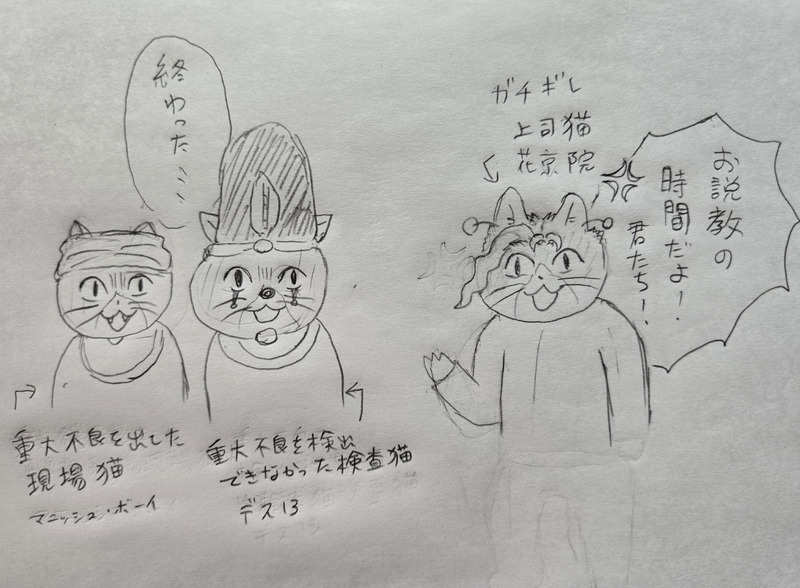 終わった…
ガチギレ
上司猫
花京院
お説教の
時間だよ!
君たち!
重大不良を出した
現場猫
マニッシュ・ボーイ
重大不良を検出
できなかった検査猫
デス13